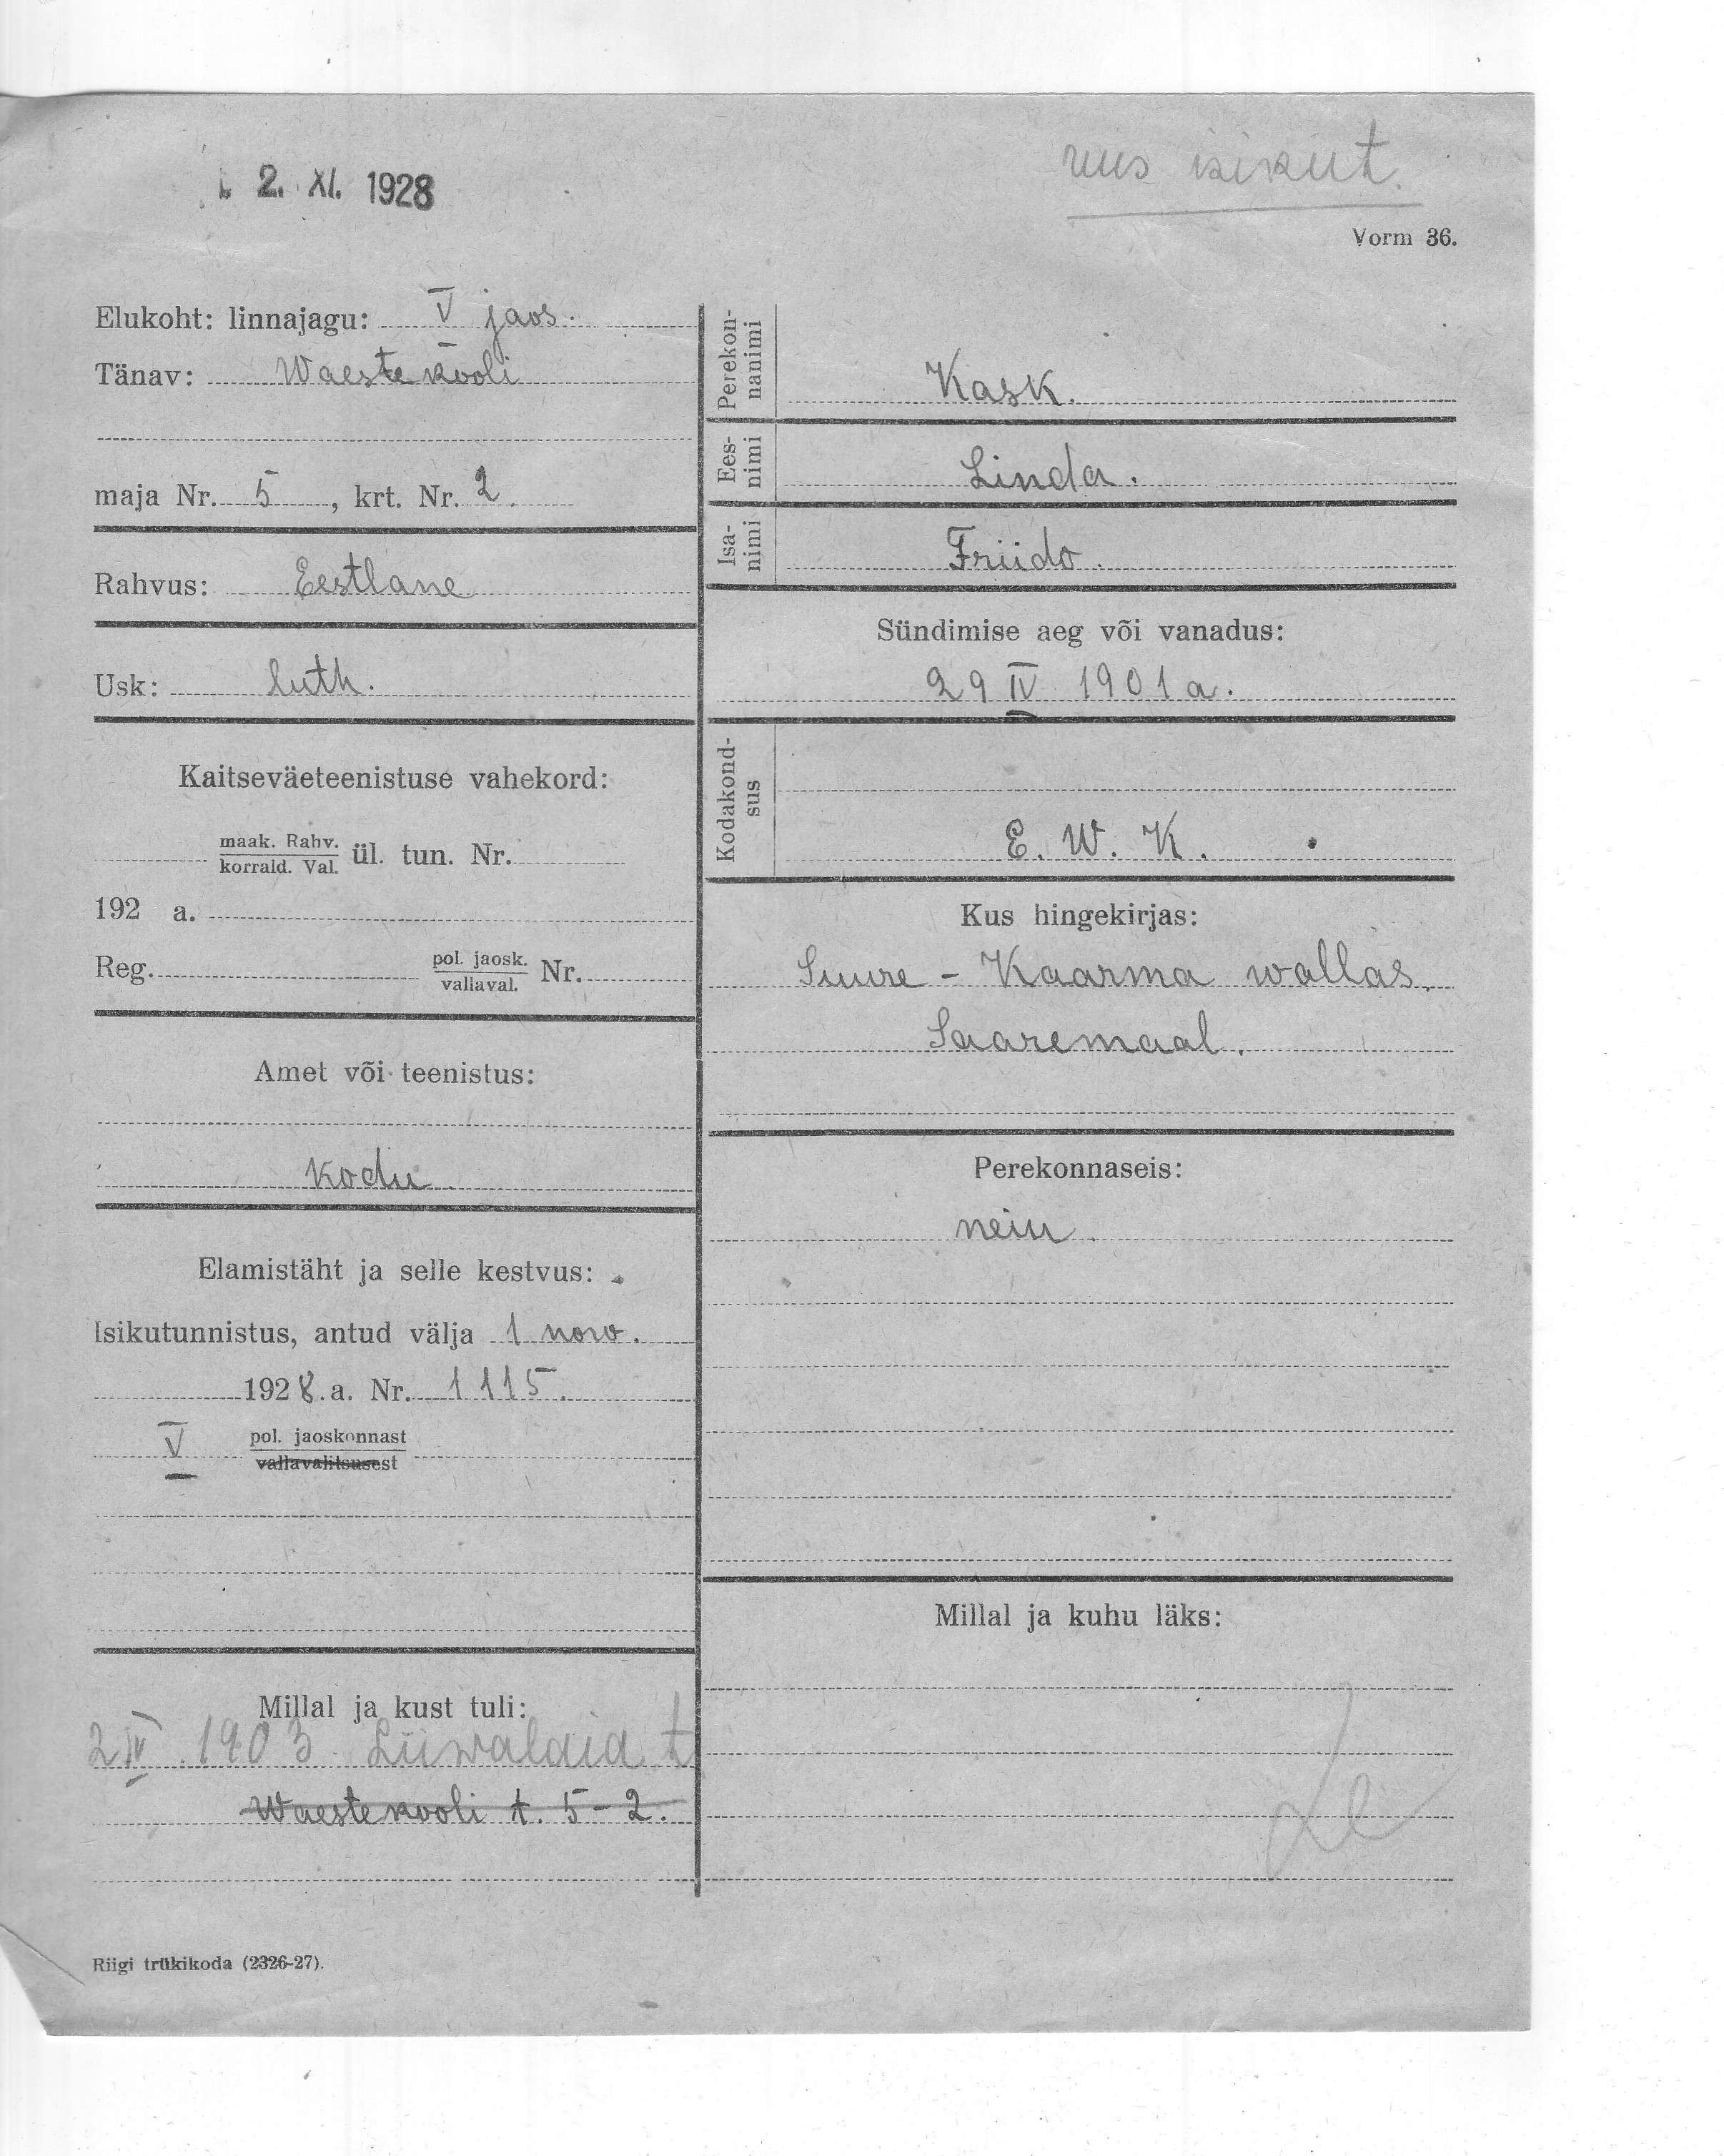 2. XI. 1928
uus isikut.
Vorm 36.
Elukoht: linnajagu: V jaos.
Tänav: Waestekooli
maja Nr. 5, krt. Nr. 2.
Rahvus: Eestlane
Usk: luth.
Kaitseväeteenistuse vahekord:
maak. Rahv.
korrald. Val.
ül. tun. Nr.
192 a.
Reg. pol. jaosk.
vallaval.
Nr.
Amet või teenistus:
Kodu
Elamistäht ja selle kestvus:
Isikutunnistus, antud välja 1 now.
1928. a. Nr. 1115.
V pol. jaoskonnast
vallavalitsusest
Millal ja kust tuli:
2 IV. 1903. Liiwalaia t
Waestekooli t. 5-2.
Riigi trükikoda (2326-27).
Perekon-
nanimi
Kask.
Ees-
nimi
Linda.
Isa-
nimi
Friido.
Sündimise aeg või vanadus:
29 IV 1901 a.
Kodakond-
sus
E. W. K.
Kus hingekirjas:
Suure-Kaarma wallas,
Saaremaal.
Perekonnaseis:
neiu.
Millal ja kuhu läks: